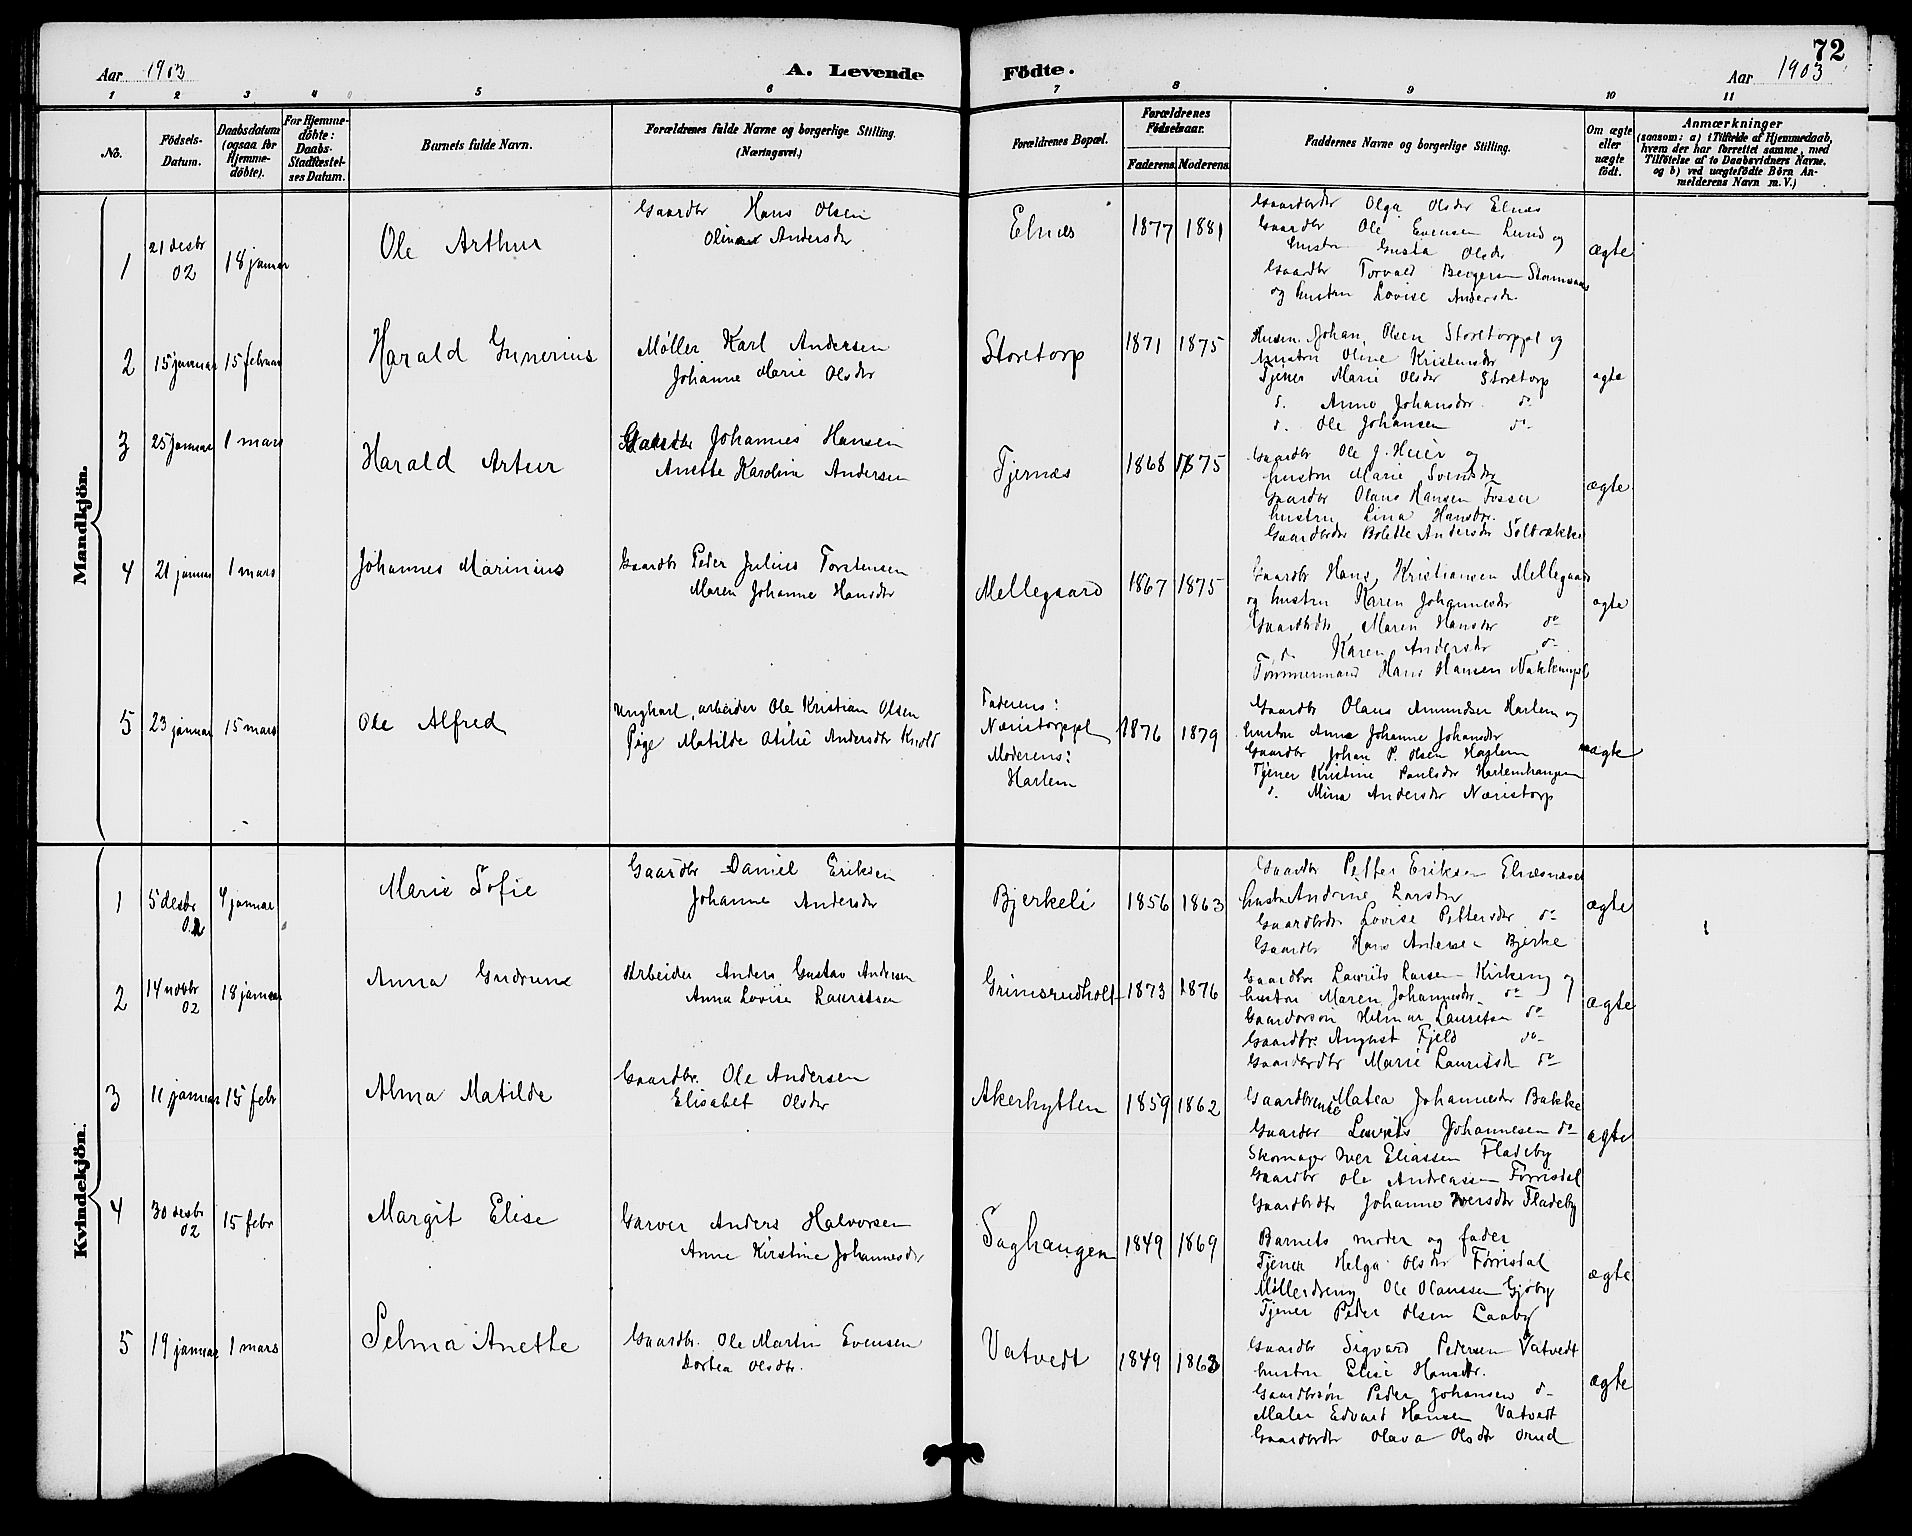 72
Aar 1903
A. Levende Fødte.
Aar 1903
1 2 3 4 5 6 7 8 9 10 11
No.
Fødsels-Datum.
Daabsdatum (ogsaa for Hjemme-døbte).
For Hjemme-døbte: Daabs-Stadfæstel-ses Datum.
Barnets fulde Navn.
Forældrenes fulde Navne og borgerlige Stilling.
(Næringsvei.)
Forældrenes Bopæl.
Forældrenes Fødselsaar.
Faderens. Moderens.
Faddernes Navne og borgerlige Stilling.
Om ægte eller uægte født.
Anmærkninger
(saasom: a) i Tilfælde af Hjemmedaab,
hvem der har forrettet samme, med
Tilføielse af to Daabsvidners Navne.
og b) ved uægtefødte Børn An-
melderens Navn m.V.)
Mandkjøn.
1 21 desbr 02 18 januar Ole Arthur
Gaardbr Hans Olsen
Olinae Andersdr
Elnes 1877 1881
Gaardbdr Olga Olsdr Elnæs
Gaardbr Ole Evensen Lund og
hustru Gusta Olsdr
Gaardbr Torvald Bergersen Stamnæs
og hustru Lovise Andersdr
ægte
2 15 januar 15 februar Harald Gunerius
Møller Karl Andersen
Johanne Marie Olsdr
Storetorp 1871 1875
Husm. Johan Olsen Storetorppl og
hustru Oline Kristensdr
Tjener Marie Olsdr Storetorp
d. Anna Johansdr do
d. Ole Johansen do
ægte
3 25 januar 1 mars Harald Artur
Gaardbr Johannes Hansen
Anette Karoline Andersen
Tjernæs 1868 1875
Gaardbr Ole J. Heier og
hustru Marie Svendsdr
Gaardbr Olaus Hansen Fosser
hustru Lina Hansdr.
Gaardbrdr Bolette Andersdr Solbrække
ægte
4 21 januar 1 mars Johannes Marinius
Gaardbr Peder Julius Torstensen
Maren Johanne Hansdr
Mellegaard 1867 1875
Gaardbr Hans Kristiansen Mellegaard
og hustru Karen Johannesdr
Gaardbrdr Maren Hansdr do
d. Karen Andersdr do
Tømmermand Hans Hansen Nakkimpl
ægte
5 23 januar 15 mars Ole Alfred
Ungkarl, arbeider Ole Kristian Olsen
Pige Matilde Otilie Andersdr
Faderens: Næristorppl
Moderens: Harlem
1876 1879
Gaardbr Olaus Amundsen Harlem og
hustru Anna Johanne Johansdr
Gaardbr Johan P. Olsen Harlem
Tjener Kristine Paulsdr Harlemhaugen
d. Mina Andersdr Næristorp
uægte
Kvindekjøn.
1 5 desbr 02 4 januar Marie Sofie
Gaardbr Daniel Eriksen
Johanne Andersdr
Bjerkeli 1856 1863
Gaardbr Petter Eriksen Elnæsnæset
hustr Andrine Larsdr
Gaardbrdr Lovise Pettersdr do
Gaardbr Hans Andersen Bjerke
ægte
2 14 novbr 02 18 januar Anna Gudrune
Arbeider Anders Gustav Andersen
Anna Lovise Lauritsen
Grimsrudholt 1873 1876
Gaardbr Laurits Larsen Kirkeng og
hustru Maren Johannesdr do
Gaardbrsøn Helmar Lauritsen do
Gaardbr August Fjeld do
Gaardbrdtr Marie Lauritsdr do
ægte
3 11 januar 15 febr Alma Matilde
Gaardbr. Ole Andersen
Elisabet Olsdr
Akerhytten 1859 1862
Gaardbrenke Matea Johannesdr Bakke
Gaardbr Laurits Johannesen do
Skomager Iver Eliassen Fladeby
Gaardbr Ole Andreassen Førrisdal
Gaardbrdtr Johanne Iversdtr Fladeby
ægte
4 30 desbr 02 15 febr Margit Elise
Garver Anders Halvorsen
Anne Kirstine Johannesdr
Saghaugen 1849 1869
Barnets moder og fader
Tjener Helga Olsdr Førrisdal
Møllerdreng Ole Olaussen Gjøby
Tjener Peder Olsen Laaby
ægte
5 19 januar 1 mars Selma Anette
Gaardbr. Ole Martin Evensen
Dortea Olsdtr.
Vatvedt 1849 1863
Gaardbr Sigvard Pedersen Vatvedt
hustru Elise Hansdtr.
Gaardbrsøn Peder Johansen do
Maler Edvard Hansen Vatvedt
Gaardbrdtr Olava Olsdtr Orud
ægte